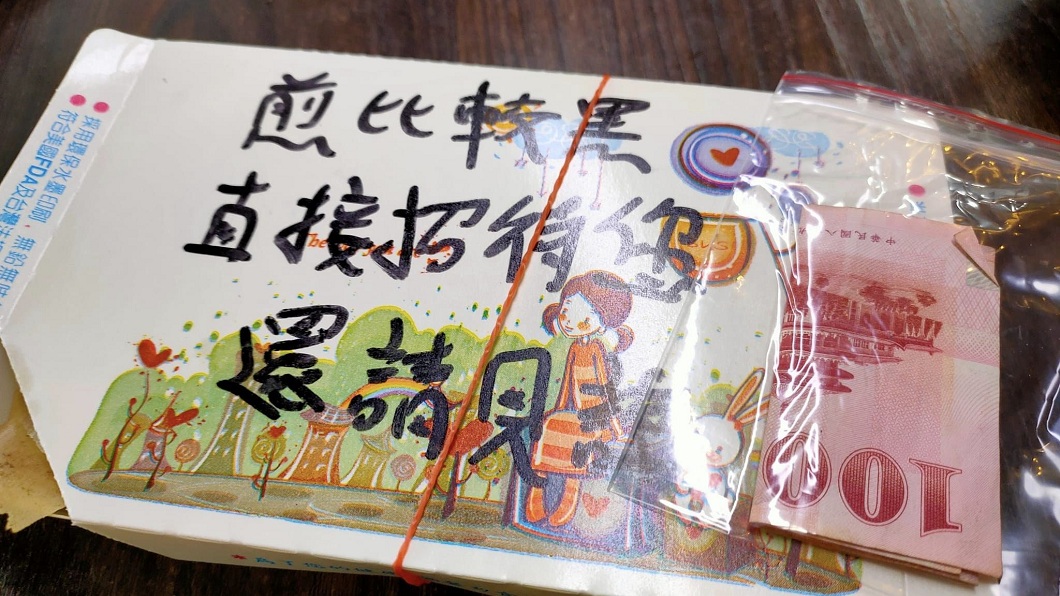 煎比較黑
直接招待您
還請見
採用環保水墨印刷,無鉛無
符合美國FDA及台灣法
The
中華民國八
100